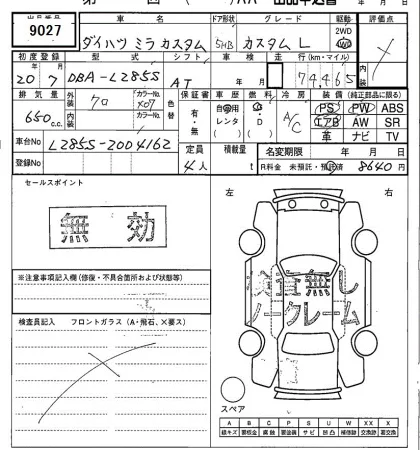 出品申込書
9027
車名 ドア形状 グレード 駆動 評価点
ダイハツ ミラ カスタム 5HB カスタム L 2WD 4WD
初度登録 型式 シフト 車検 走行(km・マイル)
20年 7月 DBA-L285S AT 年 月 74,465
排気量 外装 クロ カラーNo. X07 色替 保証書 車歴 燃料 冷房 装備(純正部品に限る)
650 c.c. 内装 カラーNo. 有・無 自家用 レンタ G・D A/C PS PW ABS
エアB AW SR
革 ナビ TV
車台No L285S-2004162 定員 積載量 名変期限 年 月 日
登録No 4人 t R料金 未預託・預託済 8640円
セールスポイント 左 右
無効
※注意事項記入欄(修復・不具合箇所および状態等)
検査員記入 フロントガラス(A・飛石、×要ス)
検査無し
ノークレーム
スペア
A B C P S U W X XX
線キズ 要板金 腐蝕 要塗装 サビ 凹凸 補修跡 交換跡 要交換